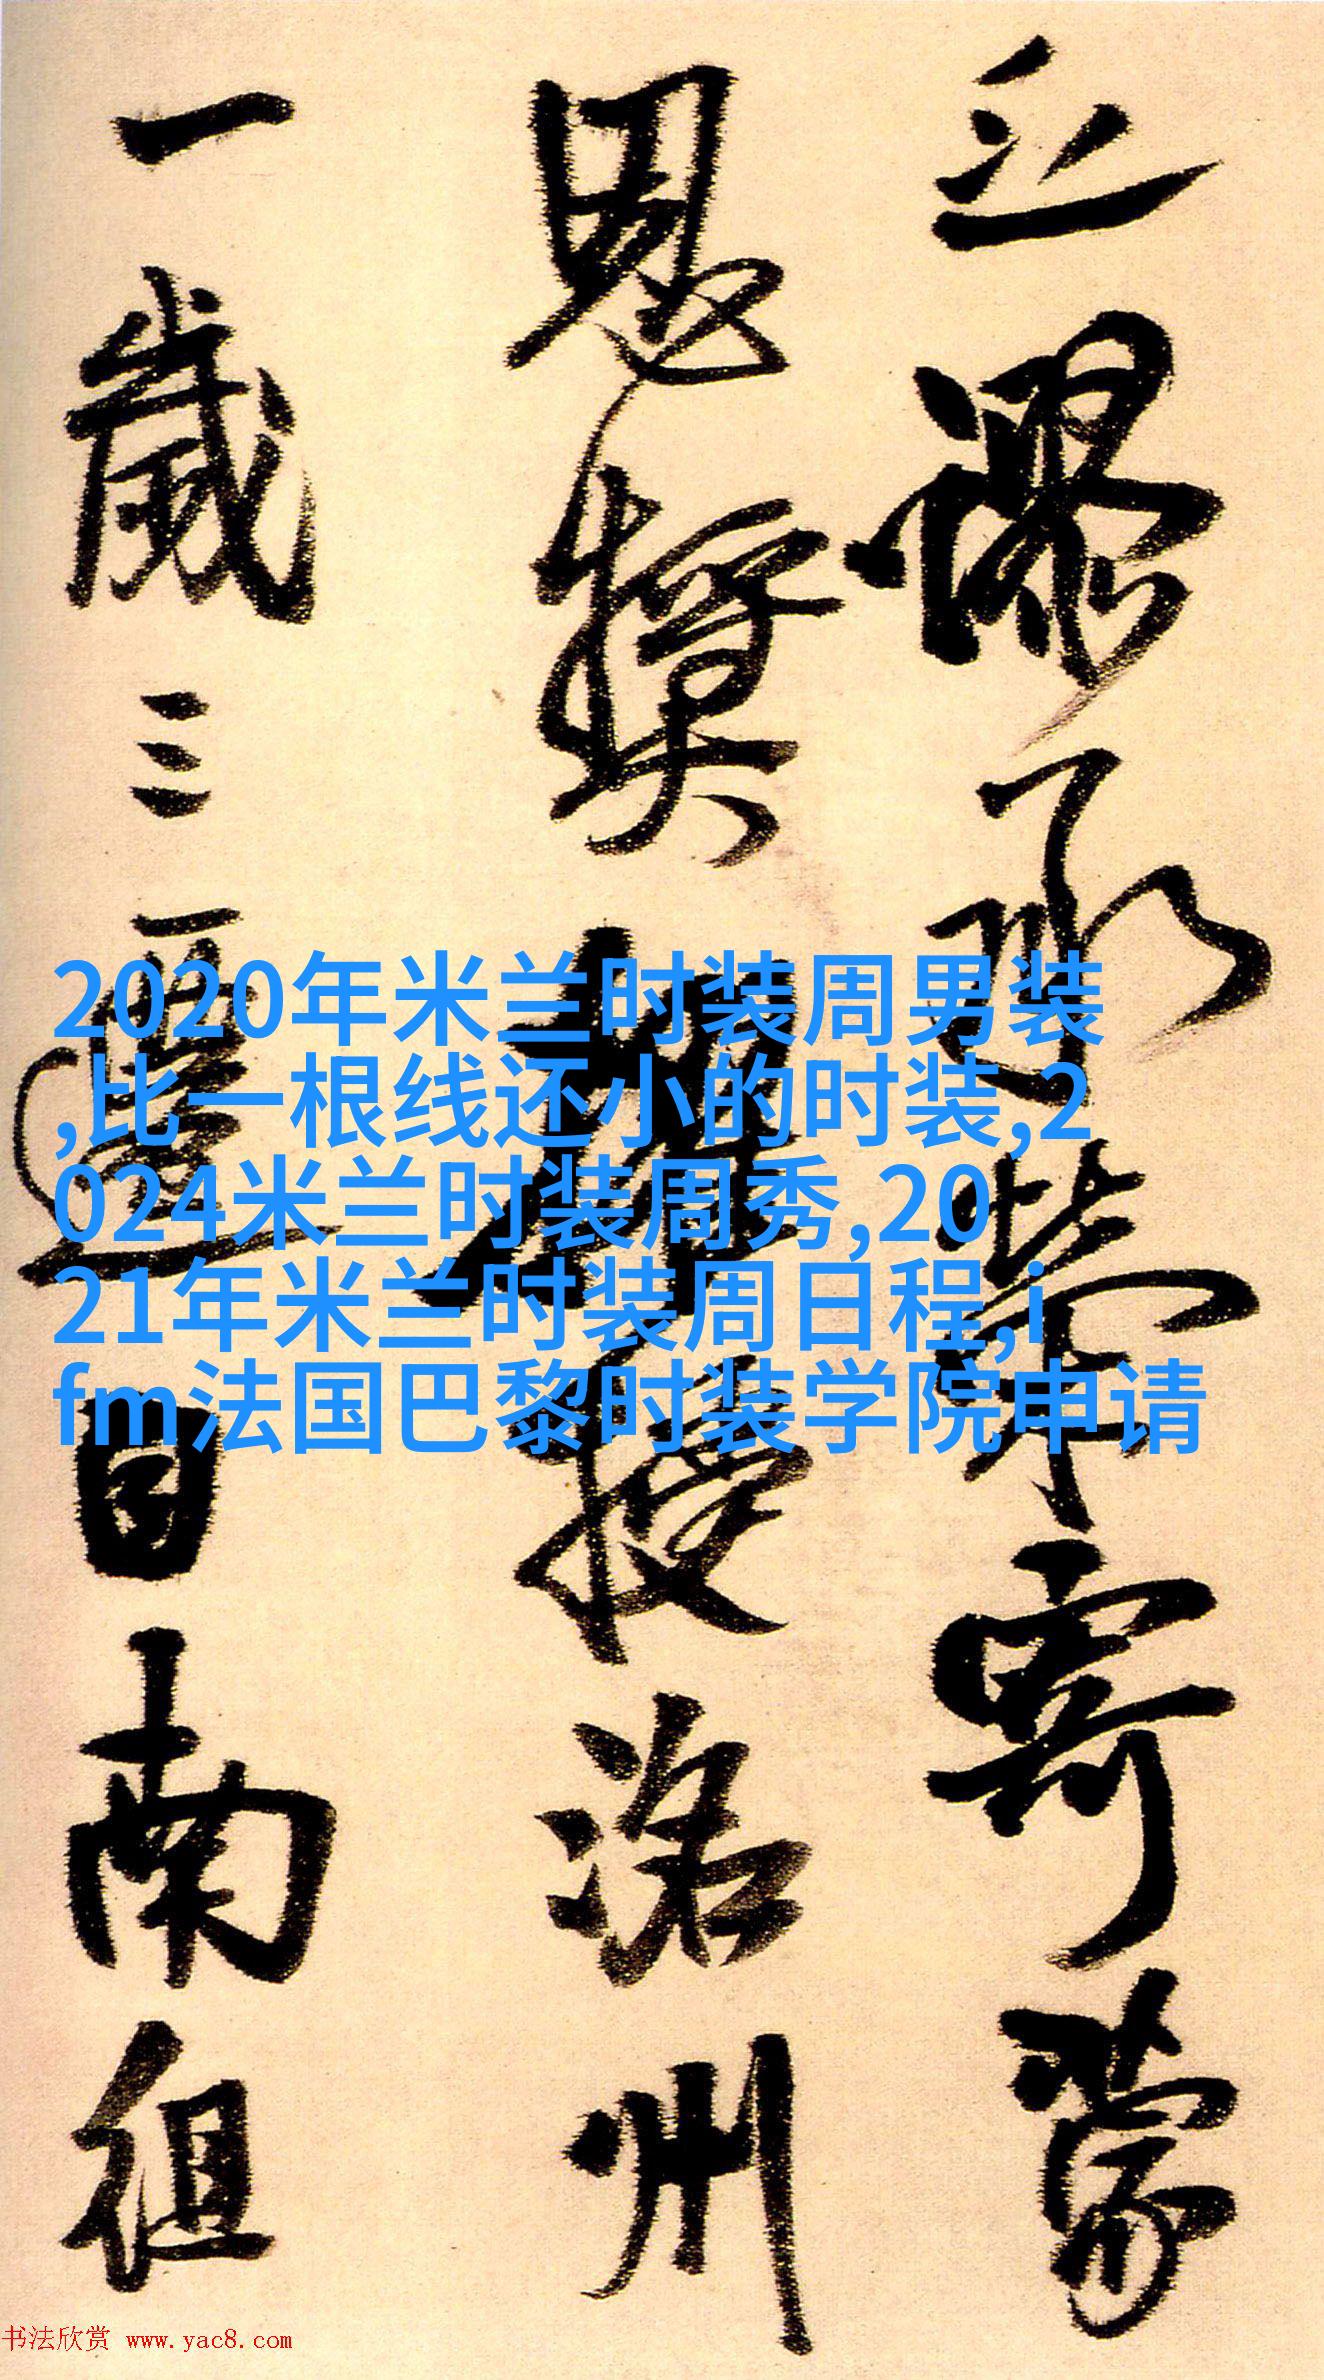 之謬承榮寄蒙
恩獎授洛州
一歲三遷自南徂
2020年米兰时装周男装
,比一根线还小的时装,2
024米兰时装周秀,20
21年米兰时装周日程,i
fm法国巴黎时装学院申请
书法欣赏 www.yac8.com